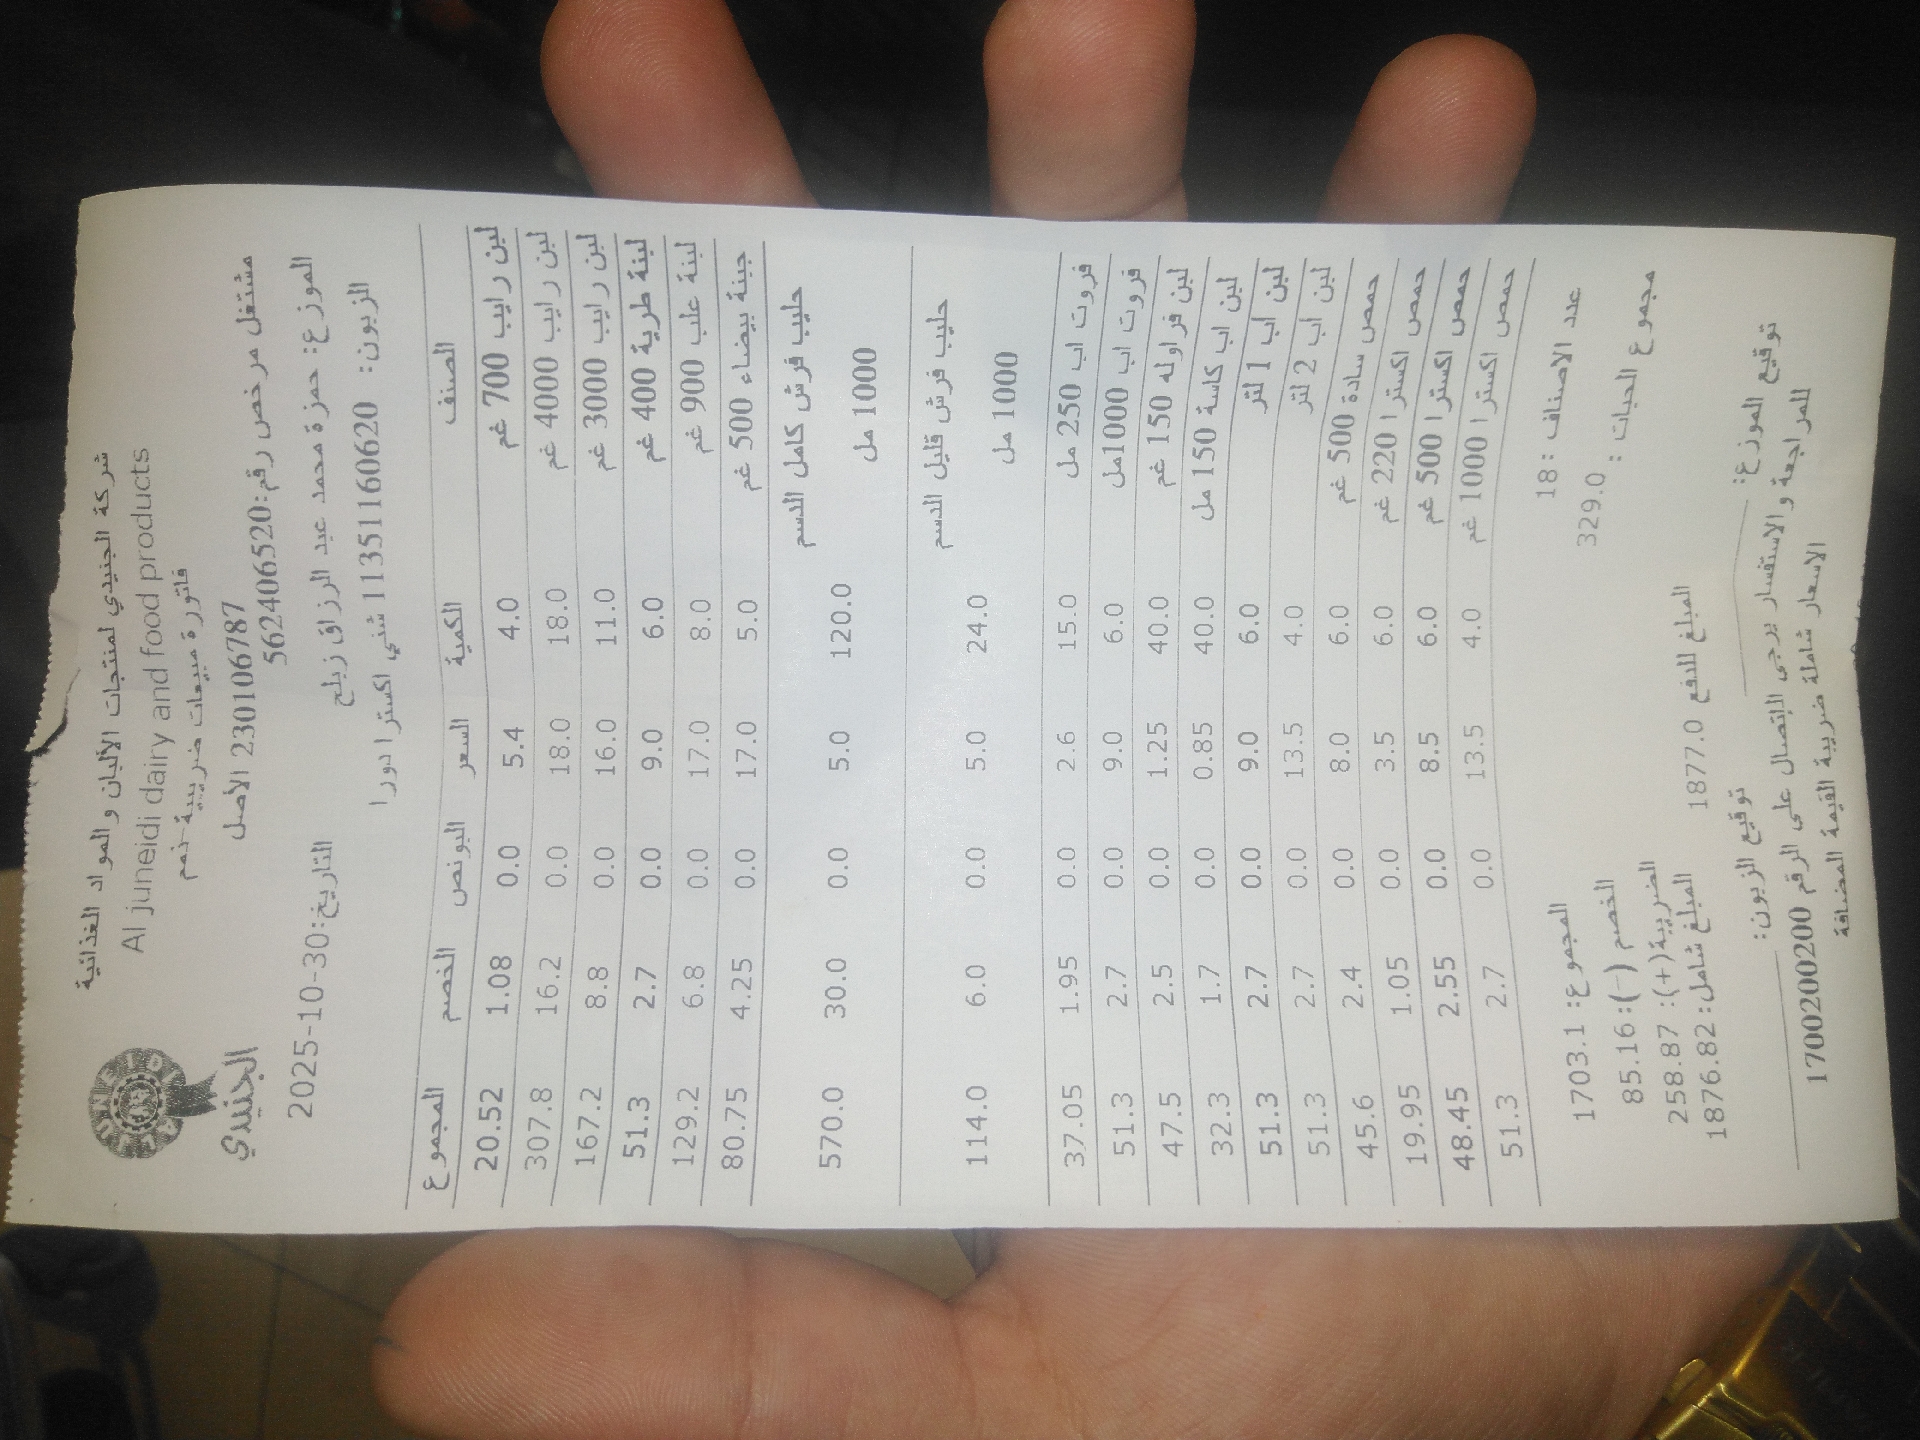 شركة الجنيدي لمنتجات الألبان والمواد الغذائية
Al juneidi dairy and food products
فاتورة مبيعات ضريبية-ذمم
230106787 الأصل
مشتغل مرخص رقم:562406520
JUNEIDI
الجنيدي
الموزع: حمزة محمد عبد الرزاق زبلح
التاريخ:2025-10-30
الزبون: 11351160620 شني اكسترا دورا
الصنف الكمية السعر البونص الخصم المجموع
لبن رايب 700 غم 4.0 5.4 0.0 1.08 20.52
لبن رايب 4000 غم 18.0 18.0 0.0 16.2 307.8
لبن رايب 3000 غم 11.0 16.0 0.0 8.8 167.2
لبنة طرية 400 غم 6.0 9.0 0.0 2.7 51.3
لبنة علب 900 غم 8.0 17.0 0.0 6.8 129.2
جبنة بيضاء 500 غم 5.0 17.0 0.0 4.25 80.75
حليب فرش كامل الدسم 120.0 5.0 0.0 30.0 570.0
1000 مل
حليب فرش قليل الدسم 24.0 5.0 0.0 6.0 114.0
1000 مل
فروت اب 250 مل 15.0 2.6 0.0 1.95 37.05
فروت اب 1000مل 6.0 9.0 0.0 2.7 51.3
لبن فراوله 150 غم 40.0 1.25 0.0 2.5 47.5
لبن اب كاسة 150 مل 40.0 0.85 0.0 1.7 32.3
لبن اب 1 لتر 6.0 9.0 0.0 2.7 51.3
لبن اب 2 لتر 4.0 13.5 0.0 2.7 51.3
حمص سادة 500 غم 6.0 8.0 0.0 2.4 45.6
حمص اكسترا 220 غم 6.0 3.5 0.0 1.05 19.95
حمص اكسترا 500 غم 6.0 8.5 0.0 2.55 48.45
حمص اكسترا 1000 غم 4.0 13.5 0.0 2.7 51.3
عدد الاصناف :18
مجموع الحبات : 329.0
المجموع: 1703.1
الخصم (-): 85.16
الضريبة(+): 258.87
المبلغ شامل: 1876.82
المبلغ للدفع 1877.0
توقيع الموزع:
توقيع الزبون:
للمراجعة والاستفسار يرجى الاتصال على الرقم 1700200200
الاسعار شاملة ضريبة القيمة المضافة